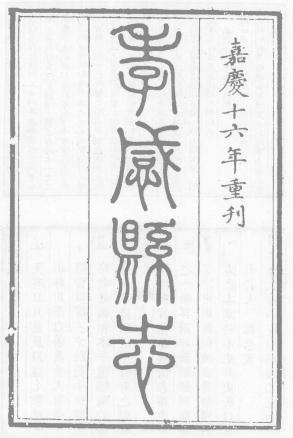 嘉慶十六年重刊
孝感縣志